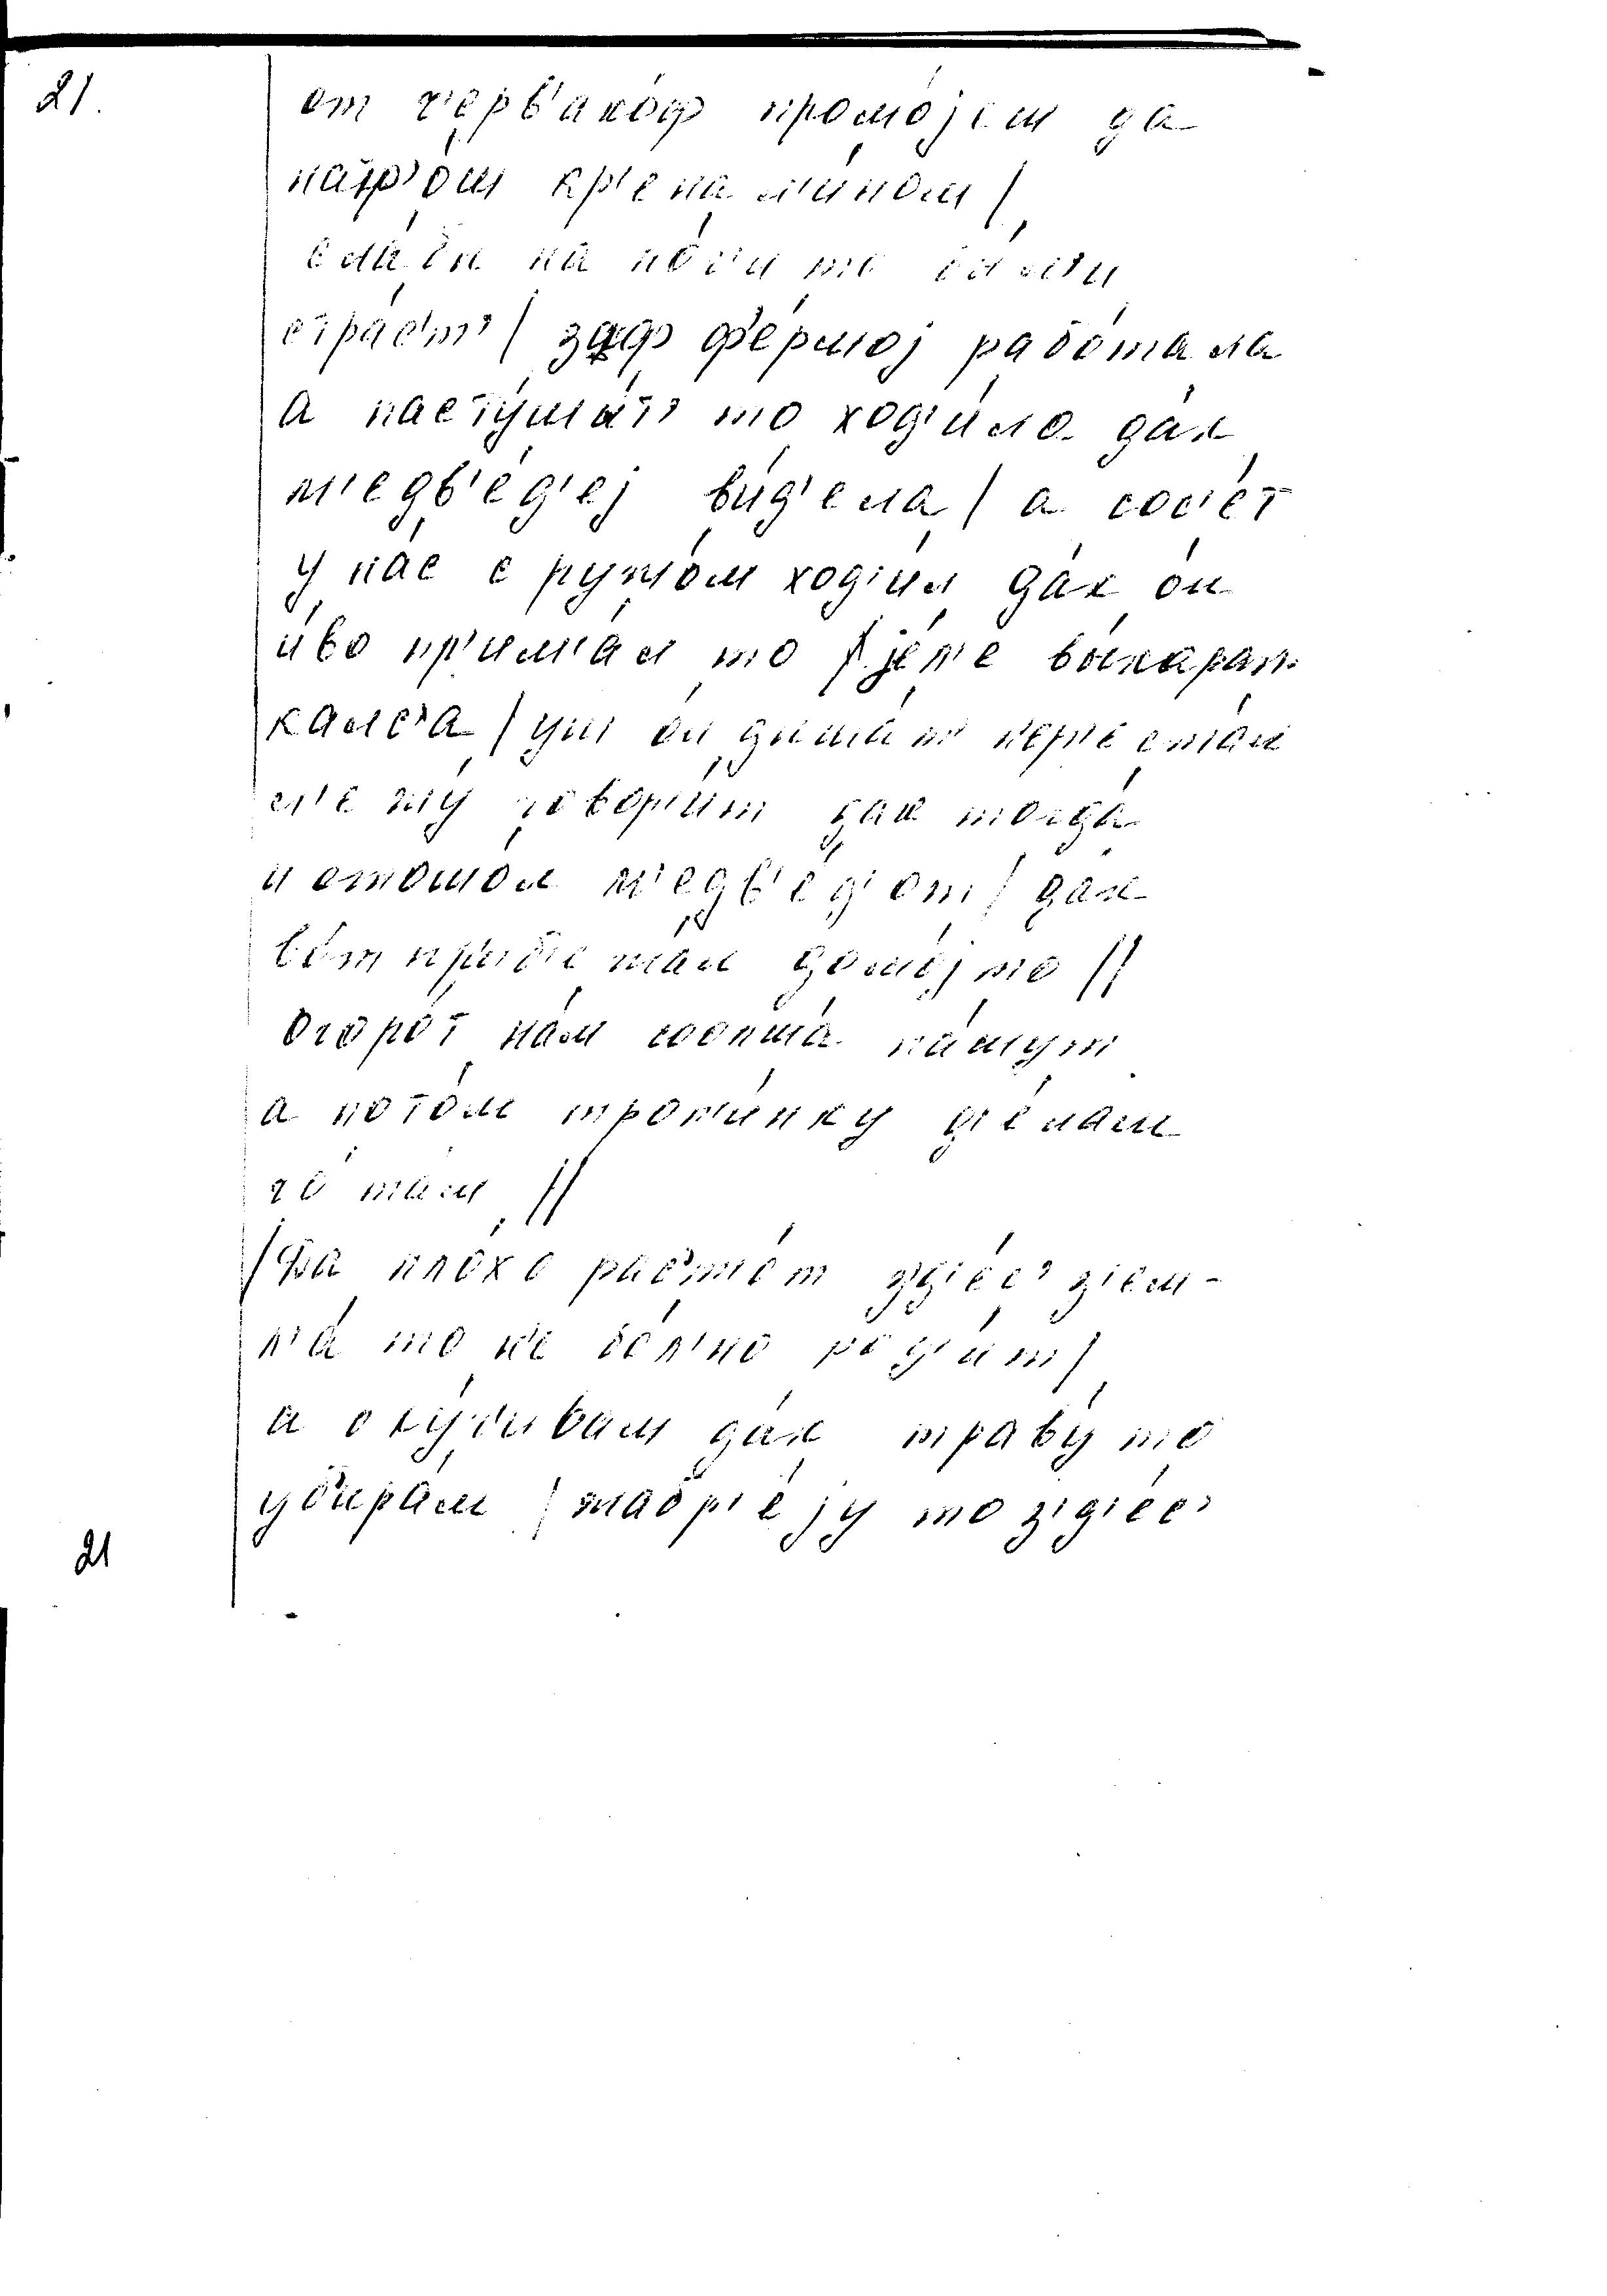 21.
от ч'ерв'ако́ф промо́јем да
натр'о́м кр'ема л'и́ном /
сла́бы на́ ноги то
стра́с'т' / за́ф ф'е́рмој рабо́тала
а пастушы́т' то ход'и́ла да́к
м'едв'е́д'еј ви́д'ела / а сос'е́т
у на́с с ружјо́м ход'и́л да́к о́н
и́во прижа́л то / је́л'е вы́карап-
калс'а / уш о́н дыша́т' п'ер'еста́л
м'е́жу говор'и́т дак тогда́
и отошо́л м'едв'е́д' от / дак
во́т приб'ежа́л домо́ј то //
огоро́т на́м сообща́ па́шут
а пото́м троп'и́нку д'е́лам
чо́ там //
/ Да пло́хо раст'о́т з'д'е́с' з'ем-
л'а́ то н'е бо́л'но род'и́т /
а оку́чивам да́к траву́ то
убира́м / жабр'е́ју то з'д'е́с'
21